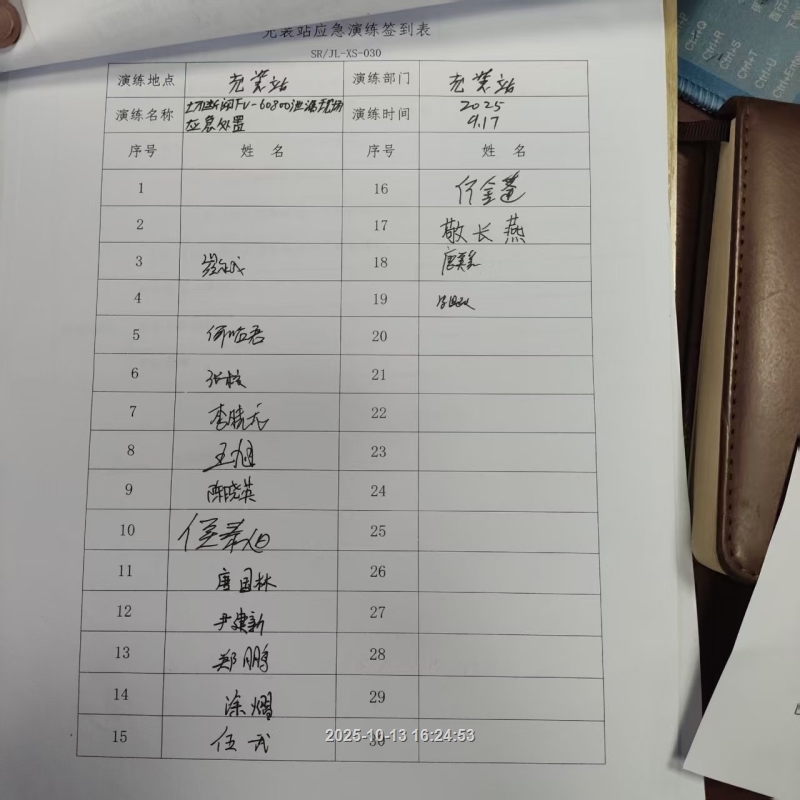 充装站应急演练签到表
SR/JL-XS-030
演练地点 充装站 演练部门 充装站
演练名称 切断阀FV-60800泄漏现场 演练时间 2025
应急处置 9.17
序号 姓 名 序号 姓 名
1 16
2 17 敬长燕
3 18
4 19
5 何临君 20
6 21
7 李晓元 22
8 王旭 23
9 陈晓英 24
10 25
11 唐国林 26
12 尹建新 27
13 郑鹏 28
14 涂熠 29
15 伍武 30
2025-10-13 16:24:53
Ctrl+Q
Ctrl+R
Ctrl+S
Ctrl+T
Ctrl+U